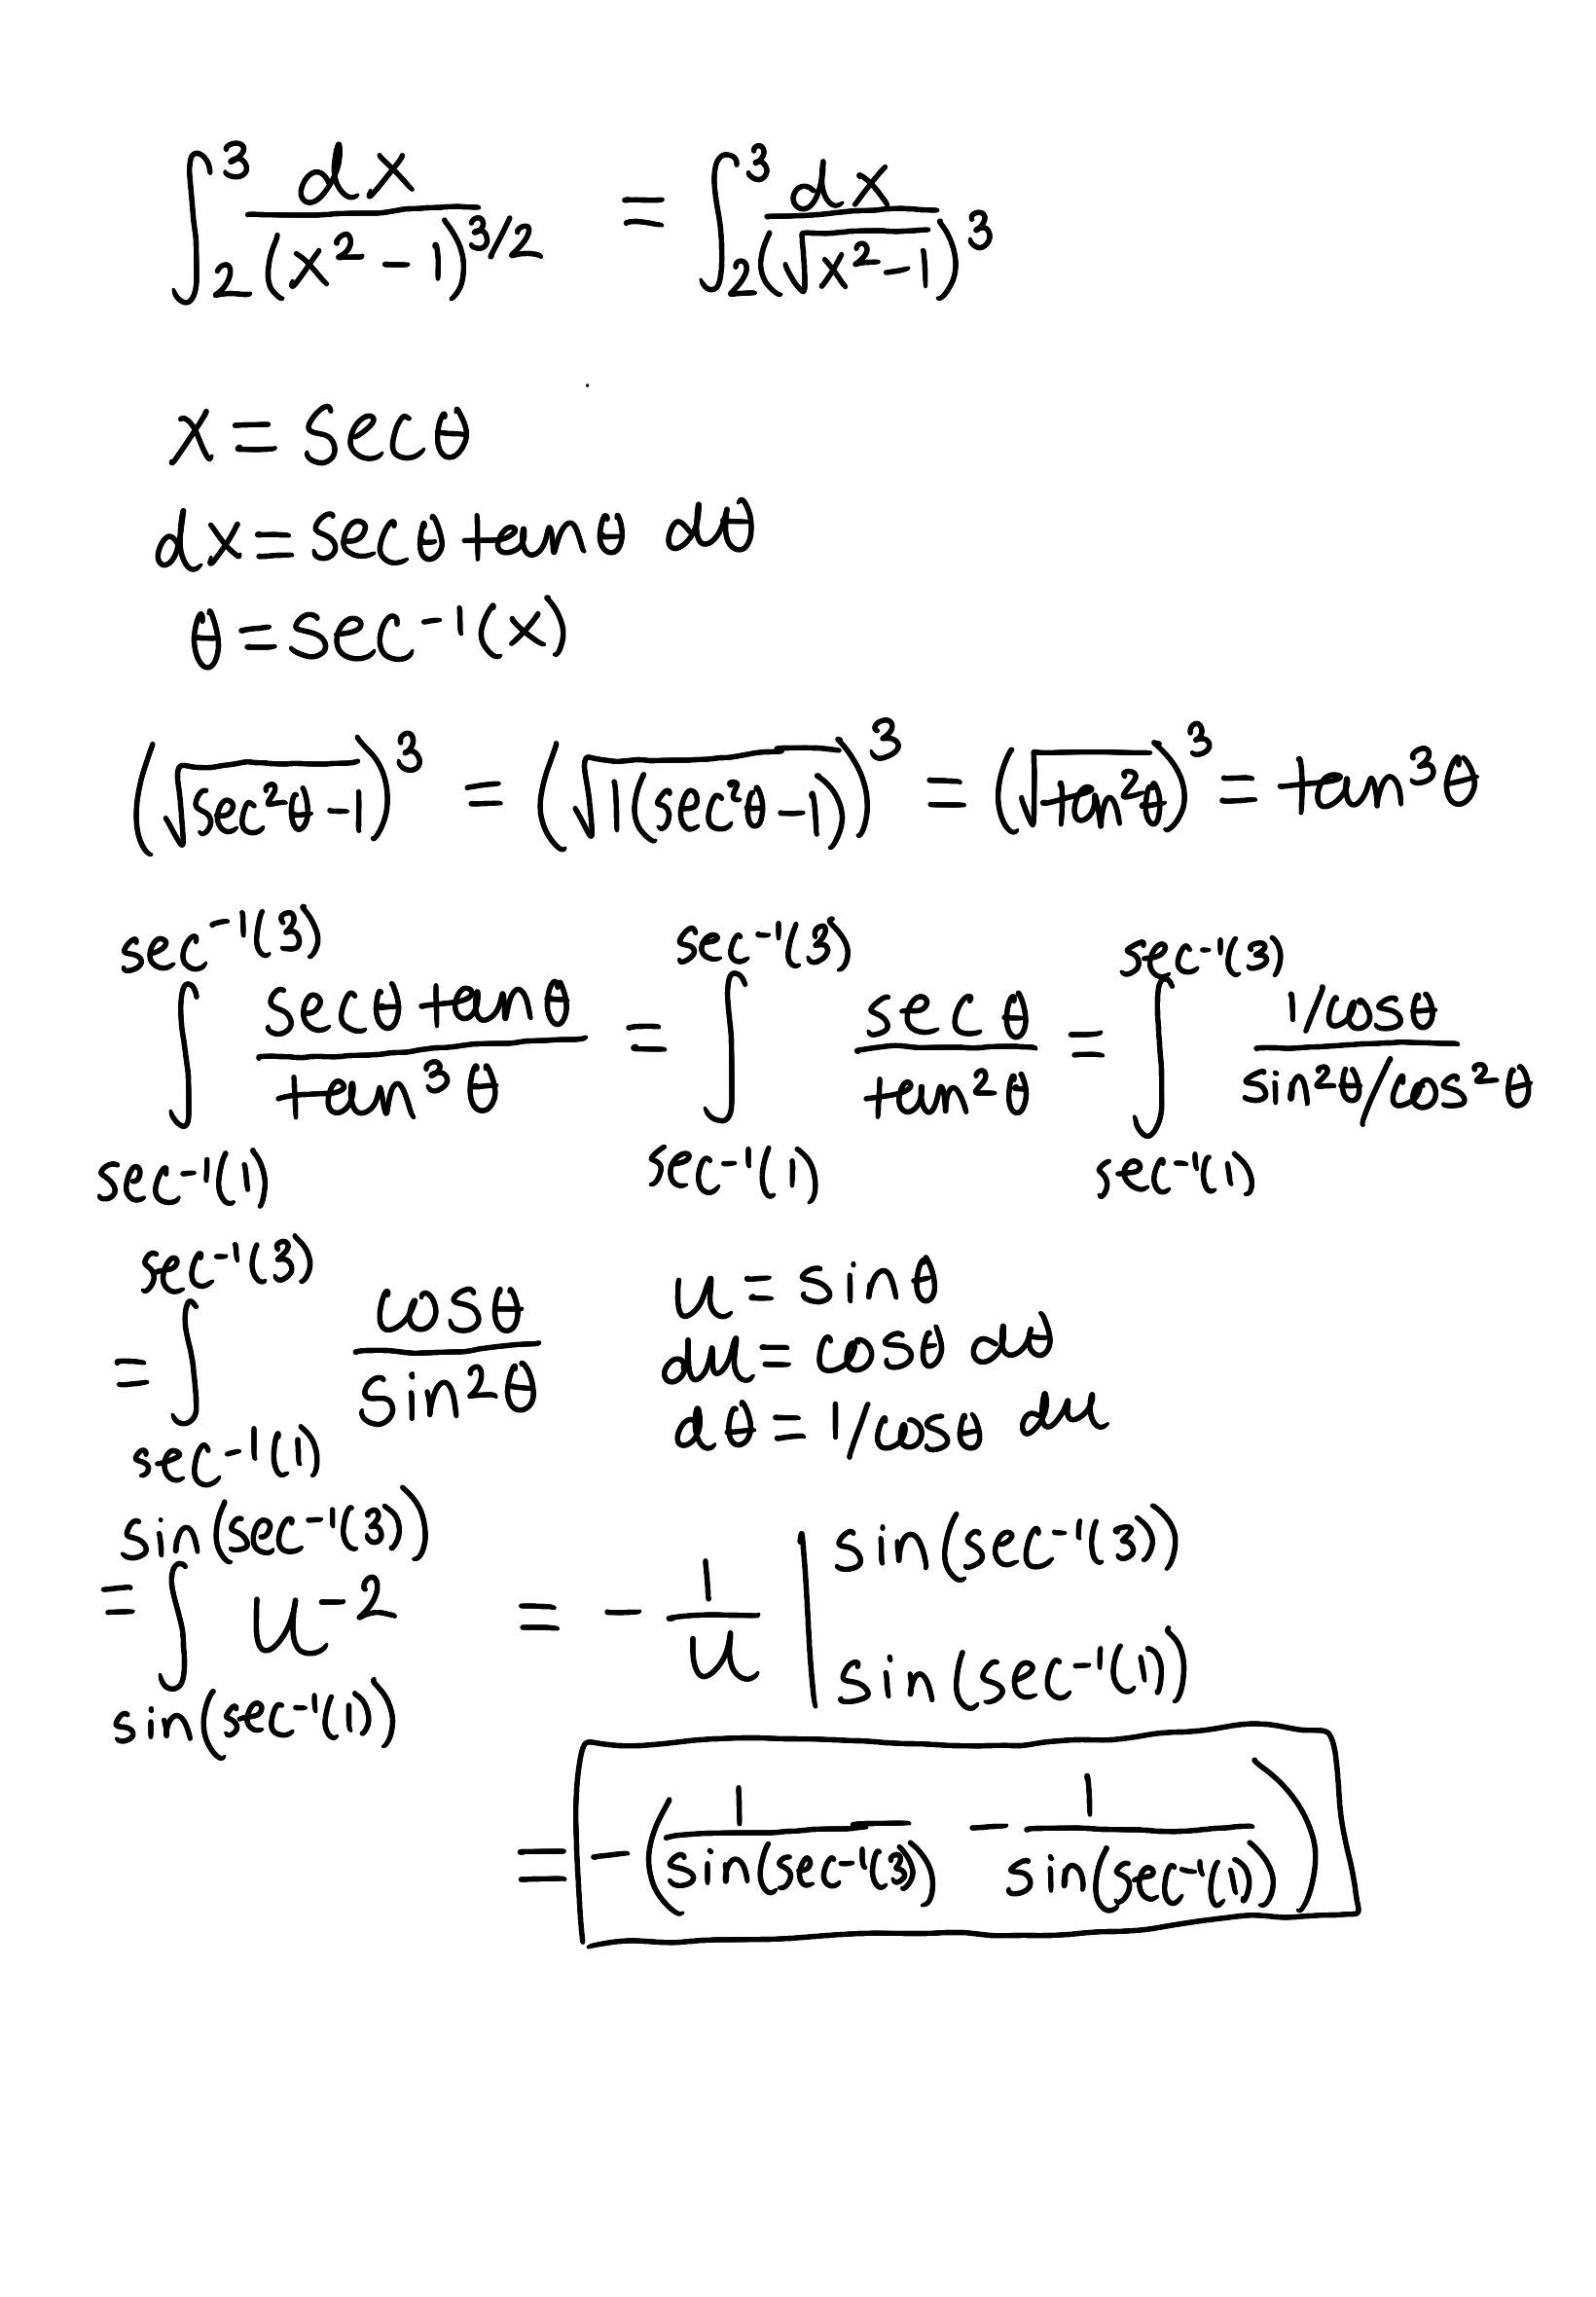 ∫₂³ dx/(x² - 1)^(3/2) = ∫₂³ dx/(√(x² - 1))³
x = secθ
dx = secθ tanθ dθ
θ = sec⁻¹(x)
(√(sec²θ - 1))³ = (√(1(sec²θ - 1)))³ = (√(tan²θ))³ = tan³θ
∫_{sec⁻¹(1)}^{sec⁻¹(3)} secθ tanθ/tan³θ = ∫_{sec⁻¹(1)}^{sec⁻¹(3)} secθ/tan²θ = ∫_{sec⁻¹(1)}^{sec⁻¹(3)} (1/cosθ)/(sin²θ/cos²θ)
= ∫_{sec⁻¹(1)}^{sec⁻¹(3)} cosθ/sin²θ
u = sinθ
du = cosθ dθ
dθ = 1/cosθ du
= ∫_{sin(sec⁻¹(1))}^{sin(sec⁻¹(3))} u⁻² = -1/u |_{sin(sec⁻¹(1))}^{sin(sec⁻¹(3))}
= -(1/sin(sec⁻¹(3)) - 1/sin(sec⁻¹(1)))